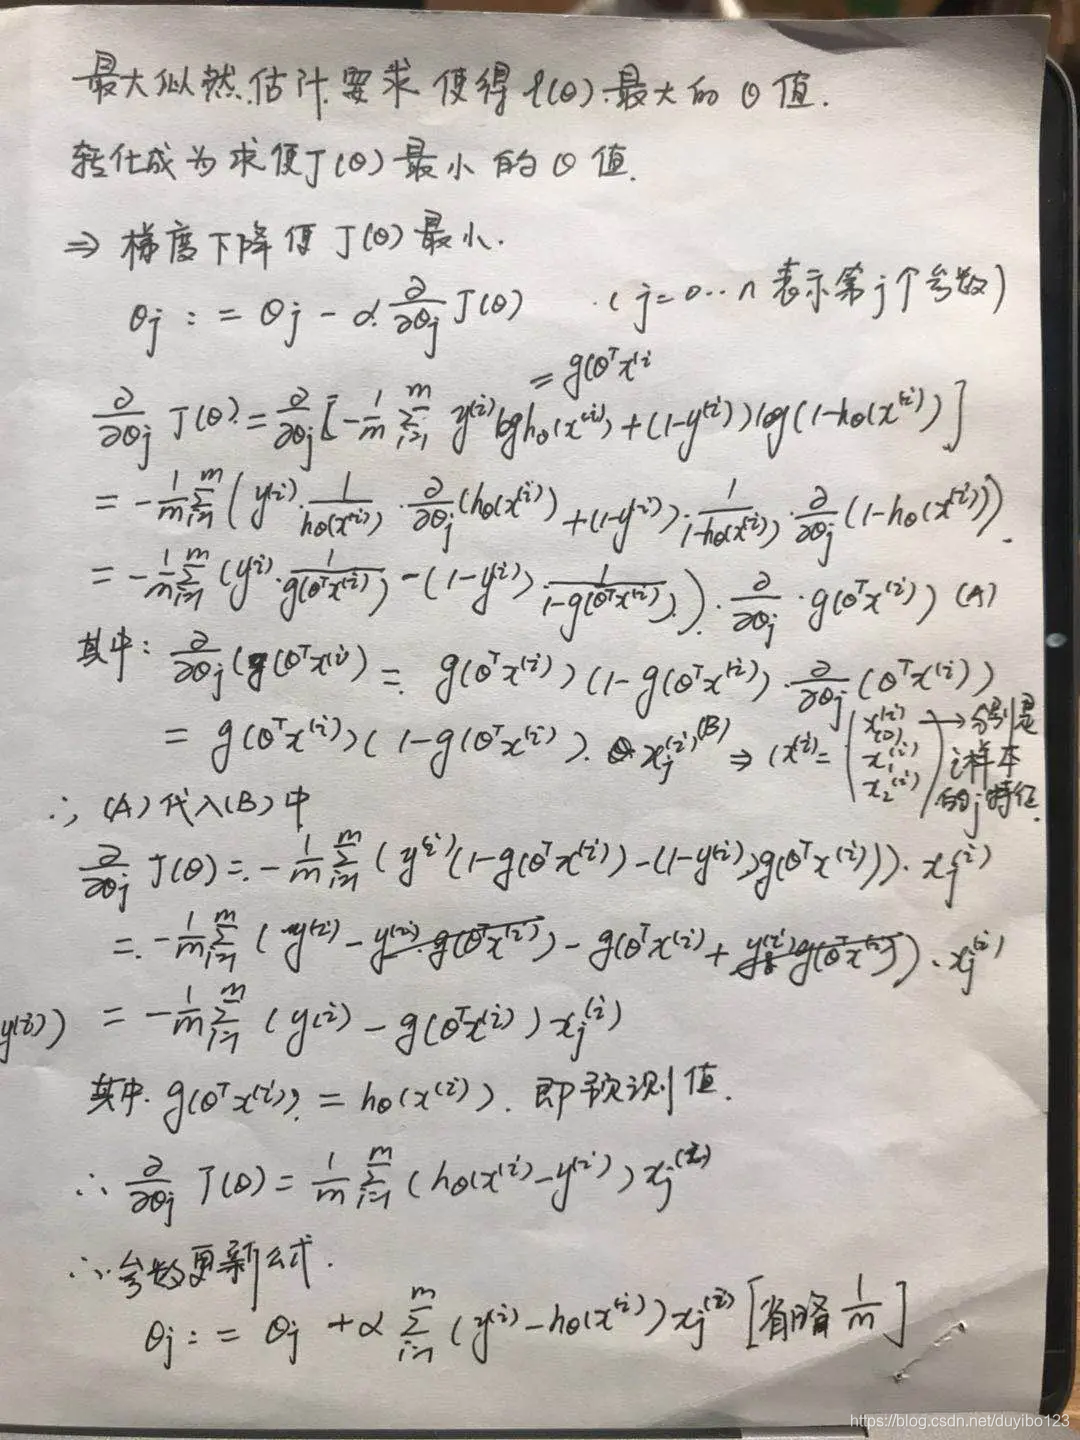 最大似然估计要求使得 l(θ) 最大的 θ 值.
转化成为求使J(θ) 最小的 θ 值.
⇒ 梯度下降使 J(θ) 最小.
θj := θj - α. ∂/∂θj J(θ) (j=0...n 表示第j个参数)
= g(θ^T x^(i)
∂/∂θj J(θ) = ∂/∂θj [-1/m Σ_{i=1}^m y^(i) log hθ(x^(i)) + (1-y^(i)) log(1-hθ(x^(i))]
= -1/m Σ_{i=1}^m (y^(i) · 1/hθ(x^(i)) · ∂/∂θj (hθ(x^(i)) + (1-y^(i)) · 1/1-hθ(x^(i)) · ∂/∂θj (1-hθ(x^(i))).
= -1/m Σ_{i=1}^m (y^(i) · 1/g(θ^T x^(i)) - (1-y^(i)) · 1/1-g(θ^T x^(i))) · ∂/∂θj · g(θ^T x^(i)) (A)
其中: ∂/∂θj (g(θ^T x^(i)) = g(θ^T x^(i)) (1-g(θ^T x^(i)) · ∂/∂θj (θ^T x^(i))
= g(θ^T x^(i)) (1-g(θ^T x^(i)) · xj^(i) (B) ⇒ (x^(i) = (x0^(i) x1^(i) x2^(i)) → 分别是
i样本
的j特征.
∴ (A)代入(B)中
∂/∂θj J(θ) = -1/m Σ_{i=1}^m (y^(i) (1-g(θ^T x^(i)) - (1-y^(i)) g(θ^T x^(i))) · xj^(i)
= -1/m Σ_{i=1}^m (y^(i) - y^(i) · g(θ^T x^(i)) - g(θ^T x^(i) + y^(i) g(θ^T x^(i))) · xj^(i)
y(i))
= -1/m Σ_{i=1}^m (y^(i) - g(θ^T x^(i)) xj^(i)
其中. g(θ^T x^(i)) = hθ(x^(i)). 即预测值.
∴ ∂/∂θj J(θ) = 1/m Σ_{i=1}^m (hθ(x^(i) - y^(i)) xj^(i)
∴ 参数更新公式.
θj := θj + α Σ_{i=1}^m (y^(i) - hθ(x^(i)) xj^(i) [省略 1/m]
https://blog.csdn.net/duyibo123